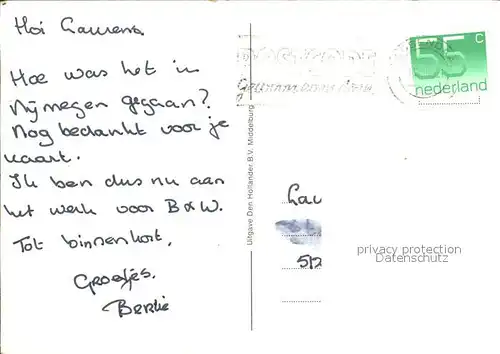 Hoi Laurens,
Hoe was het in
Nijmegen gegaan?
Nog bedankt voor je
kaart.
Ik ben dus nu aan
het werk voor B&W.
Tot binnenkort,
Groetjes.
Bertie
Uitgave Den Hollander B.V. Middelburg
55 c
nederland
Lau
privacy protection
Datenschutz
512